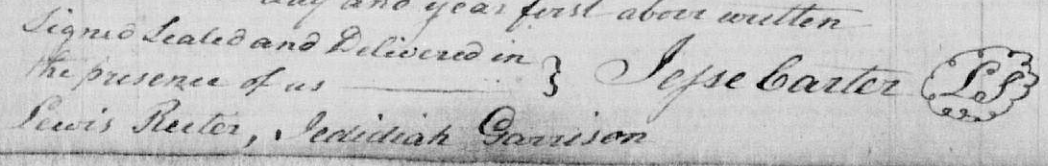 day and year first above written
Signed Sealed and Delivered in
the presence of us } Jesse Carter LS
Lewis Reeter, Jedidiah Garrison